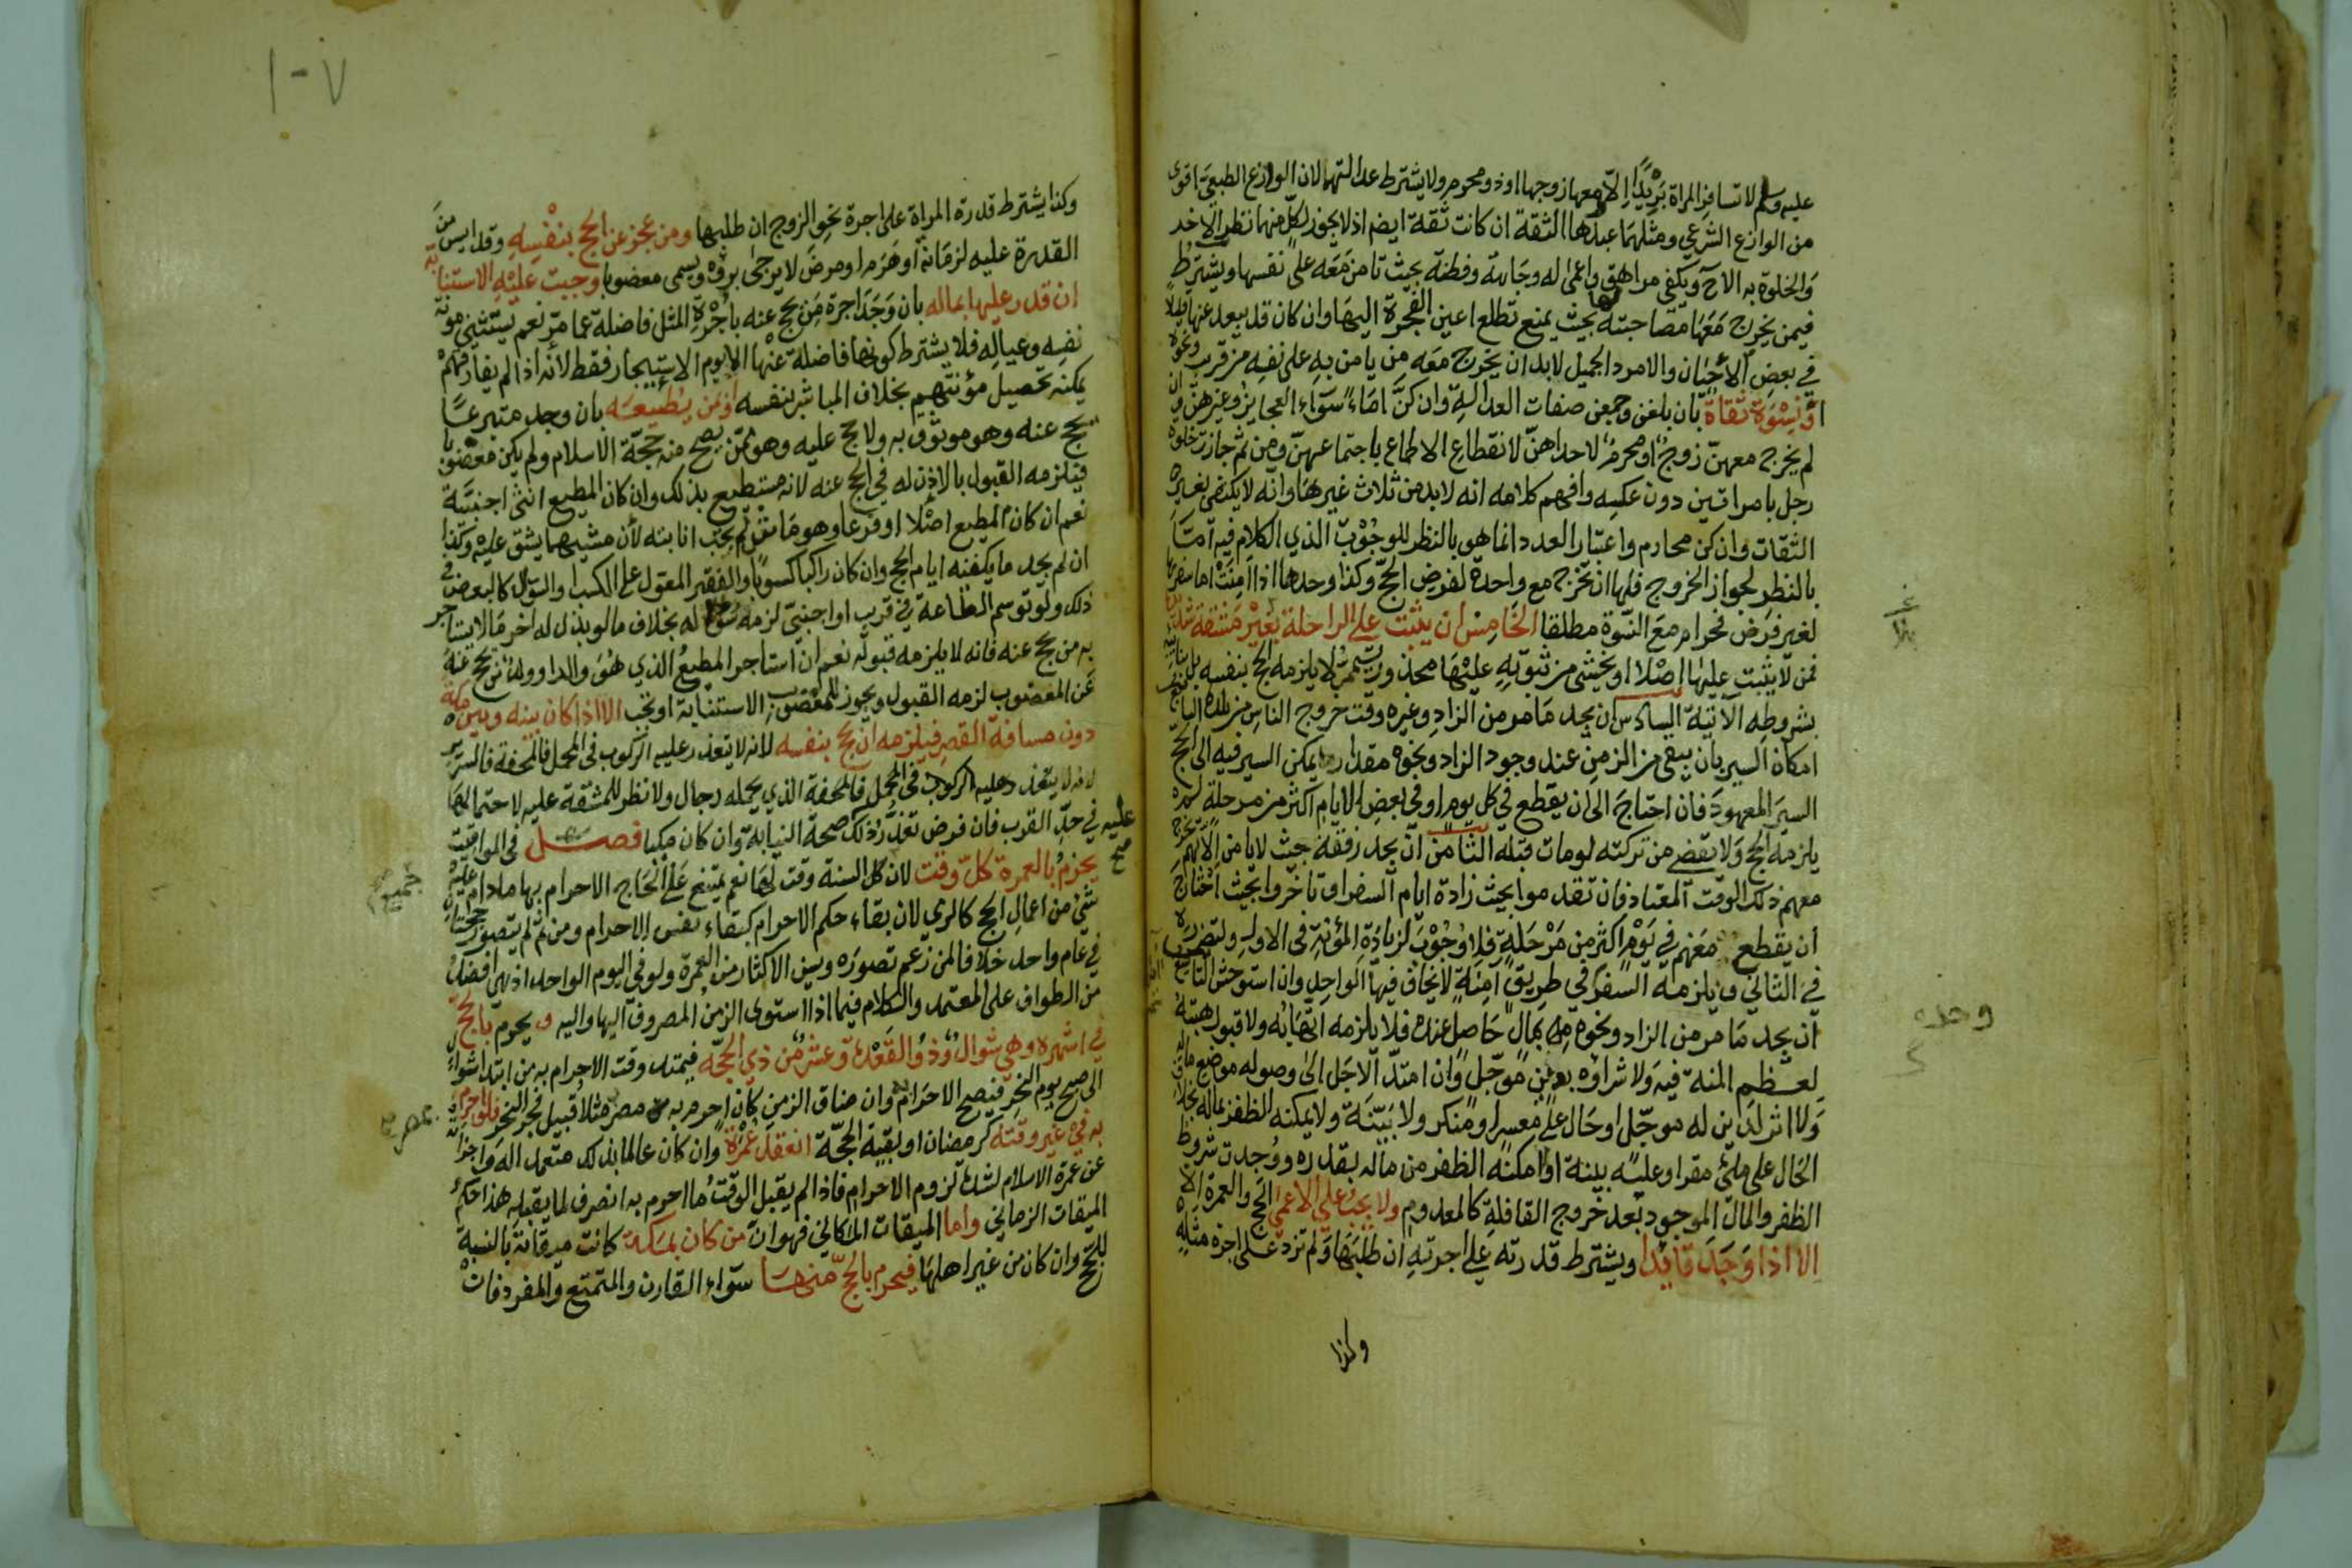 عليه وسلم لا تسافر المراة بريدا الا معها زوجها او ذو محرم ولا يشترط عدالتهما لان الوازع الطبيعي اقوى
من الوازع الشرعي ومثلهما عبدها الثقة ان كانت ثقة ايضا اذ لا يجوز لكل منهما نظر الاخر
والخلوة به الا ح ويكفي مراهق واعمى له وجاهة وفطنة بحيث تامن معه على نفسها ويشترط
فيمن يخرج معها مصاحبته لها بحيث يمنع تطلع اعين الفجرة اليها وان كان قد يبعد عنها قليلا
في بعض الاحيان والامرد الجميل لابد ان يخرج معه من يامن به على نفسه من قريب ونحوه
او نسوة ثقاة بان بلغن وجمعن صفات العدالة وان كن اماء سواء العجايز وغيرهن وان
لم يخرج معهن زوج او محرم لاحداهن لانقطاع الاطماع باجتماعهن ومن ثم جازت خلوة
رجل بامراتين دون عكسه وافهم كلامه انه لابد من ثلاث غيرها وانه لا يكتفى بغير
الثقات وان كن محارم واعتبار العدد انما هو بالنظر للوجوب الذي الكلام فيه اما
بالنظر لجواز الخروج فلها ان تخرج مع واحدة لفرض الحج وكذا وحدها اذا امنت اما سفرها
لغير فرض فحرام مع النسوة مطلقا الخامس ان يثبت على الراحلة بغير مشقة شديدة
فمن لا يثبت عليها اصلا او يخشى من ثبوته عليها محذور تيمم لا يلزمه الحج بنفسه بل بنائبه
بشروطه الاتية السادس ان يجد ما مر من الزاد وغيره وقت خروج الناس من بلده السابع
امكان السير بان يبقى من الزمن عند وجود الزاد ونحوه مقدار يمكن السير فيه الى الحج
السير المعهود فان احتاج الى ان يقطع في كل يوم او في بعض الايام اكثر من مرحلة لم
يلزمه الحج ولا يقضى من تركته لو مات قبله الثامن ان يجد رفقة حيث لا يامن الا بهم يخرج
معهم ذلك الوقت المعتاد فان تقدموا بحيث زادة ايام السفر او تاخروا بحيث احتاج
ان يقطع معهم في يوم اكثر من مرحلة فلا وجوب لزيادة المؤنة في الاول ولتضرره
في الثاني ويلزمه السفر في طريق امنة لا يخاف فيها الواحد وان استوحش التاسع
ان يجد ما مر من الزاد ونحوه بمال حاصل عنده فلا يلزمه اتهابه ولا قبول هبته
لعظم المنة فيه ولا شراؤه بثمن مؤجل وان امتد الاجل الى وصوله موضع ماله
ولا اثر لدين له مؤجل او حال على معسر او منكر ولا بينة ولا يمكنه الظفر بماله بخلاف
الحال على ملئ مقر او عليه بينة او امكنه الظفر من ماله بقدره ووجدت شروط
الظفر والمال الموجود بعد خروج القافلة كالمعدوم ولا يجب على الاعمى الحج والعمرة الا
الا اذا وجد قائدا ويشترط قدرته على اجرته ان طلبها ولم تزد على اجرة مثله
وكذا
وحده
١٠٧
وكذا يشترط قدرة المراة على اجرة نحو الزوج ان طلبها ومن عجز عن الحج بنفسه وقد ايس من
القدرة عليه لزمانة او هرم او مرض لا يرجى برؤه ويسمى معضوبا وجبت عليه الاستنابة
ان قدر عليها بماله بان وجد اجرة من يحج عنه باجرة المثل فاضلة عما مر نعم يستثنى مونة
نفسه وعياله فلا يشترط كونها فاضلة عنها الا يوم الاستيجار فقط لانه اذا لم يفارقهم
يمكنه تحصيل مؤنتهم بخلاف المباشر بنفسه او بمن يطيعه بان وجد متبرعا
يحج عنه وهو موثوق به ولا حج عليه وهو ممن يصح منه حجة الاسلام ولم يكن معضوبا
فيلزمه القبول بالاذن له في الحج عنه لانه مستطيع بذلك وان كان المطيع انثى اجنبية
نعم ان كان المطيع اصلا او فرعا وهو ماش لم يجب انابته لان مشيهما يشق عليه وكذا
ان لم يجد ما يكفيه ايام الحج وان كان راكبا كسوبا والفقير المعول على الكسب او السؤال كالبعض في
ذلك ولو توسم الطاعة في قريب او اجنبي لزمه سؤاله بخلاف ما لو بذل له اخر مالا يستاجر
به من يحج عنه فانه لا يلزمه قبوله نعم ان استاجر المطيع الذي هو والد او ولد من يحج عنه
عن المعضوب لزمه القبول ويجوز للمعضوب الاستنابة او تجب الا اذا كان بينه وبين مكة
دون مسافة القصر فيلزمه ان يحج بنفسه لانه لا يتعذر عليه الركوب في المحمل فالمحفة فالسرير
لانه لا يتعذر عليه الركوب في المحمل فالمحفة الذي يحمله رجال ولا نظر للمشقة عليه لاحتمالها
عليه في حد القرب فان فرض تعذر ذلك صحة النيابة وان كان مكيا فصل في المواقيت
يحرم بالعمرة كل وقت لان كل السنة وقت لها نعم يمتنع على الحاج الاحرام بها ما دام عليه
شئ من اعمال الحج كالرمي لان بقاء حكم الاحرام كبقاء نفس الاحرام ومن ثم لم يتصور حجتان
في عام واحد خلافا لمن زعم تصوره ويسن الاكثار من العمرة ولو في اليوم الواحد اذ هي افضل
من الطواف على المعتمد والكلام فيما اذا استوى الزمن المصروف اليها واليه ويحرم بالحج
في اشهره وهي شوال وذو القعدة وعشر من ذي الحجة فيمتد وقت الاحرام به من ابتدا شوال
الى صبح يوم النحر فيصح الاحرام به وان ضاق الزمن كان احرم به من مصر مثلا قبيل فجر النحر فلو احرم
به في غير وقته كرمضان او بقية الحجة انعقد عمرة وان كان عالما بذلك متعمدا له واجزاته
عن عمرة الاسلام لشدة لزوم الاحرام فاذا لم يقبل الوقت ما احرم به انصرف لما يقبله هذا حكم
الميقات الزماني واما الميقات المكاني فهو ان من كان بمكة كانت ميقاته بالنسبة
للحج وان كان من غير اهلها فيحرم بالحج منها سواء القارن والمتمتع والمفرد فان
صح